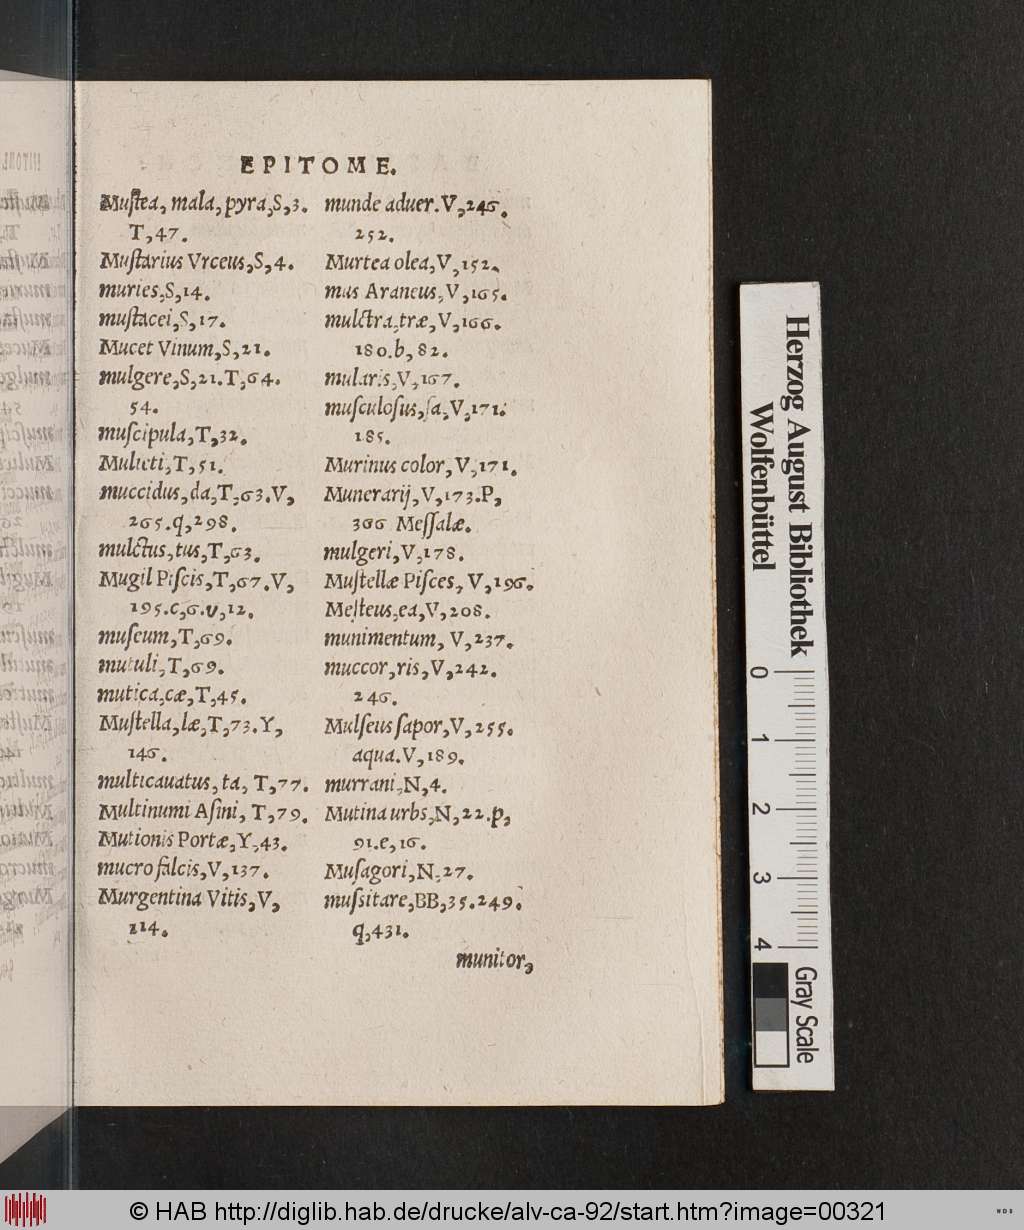 EPITOME.
Muſtea, mala, pyra, S, 3.
T, 47.
Muſtarius Vrceus, S, 4.
muries, S, 14.
muſtacei, S, 17.
Mucet Vinum, S, 21.
mulgere, S, 21. T, 64.
54.
muſcipula, T, 32.
Mulieti, T, 51.
muccidus, da, T, 63. V,
265. q, 298.
mulctus, tus, T, 63.
Mugil Piſcis, T, 67. V,
195. c, 6. v, 12.
muſeum, T, 69.
mutuli, T, 69.
mutica, cæ, T, 45.
Muſtella, læ, T, 73. Y,
146.
multicauatus, ta, T, 77.
Multinumi Aſini, T, 79.
Mutionis Portæ, Y, 43.
mucro falcis, V, 137.
Murgentina Vitis, V,
114.
munde aduer. V, 246.
252.
Murtea olea, V, 152.
mus Araneus, V, 165.
mulctra, træ, V, 166.
180. b, 82.
mularis, V, 167.
muſculoſus, ſa, V, 171.
185.
Murinus color, V, 171.
Munerarij, V, 173. P,
366 Meſſalæ.
mulgeri, V, 178.
Muſtellæ Piſces, V, 196.
Meſteus, ea, V, 208.
munimentum, V, 237.
muccor, ris, V, 242.
246.
Mulſeus ſapor, V, 255.
aqua. V, 189.
murrani, N, 4.
Mutina urbs, N, 22. p,
91. e, 16.
Muſagori, N, 27.
muſsitare, BB, 35. 249.
q, 431.
munitor,
Herzog August Bibliothek
Wolfenbüttel
0 1 2 3 4
Gray Scale
© HAB http://diglib.hab.de/drucke/alv-ca-92/start.htm?image=00321